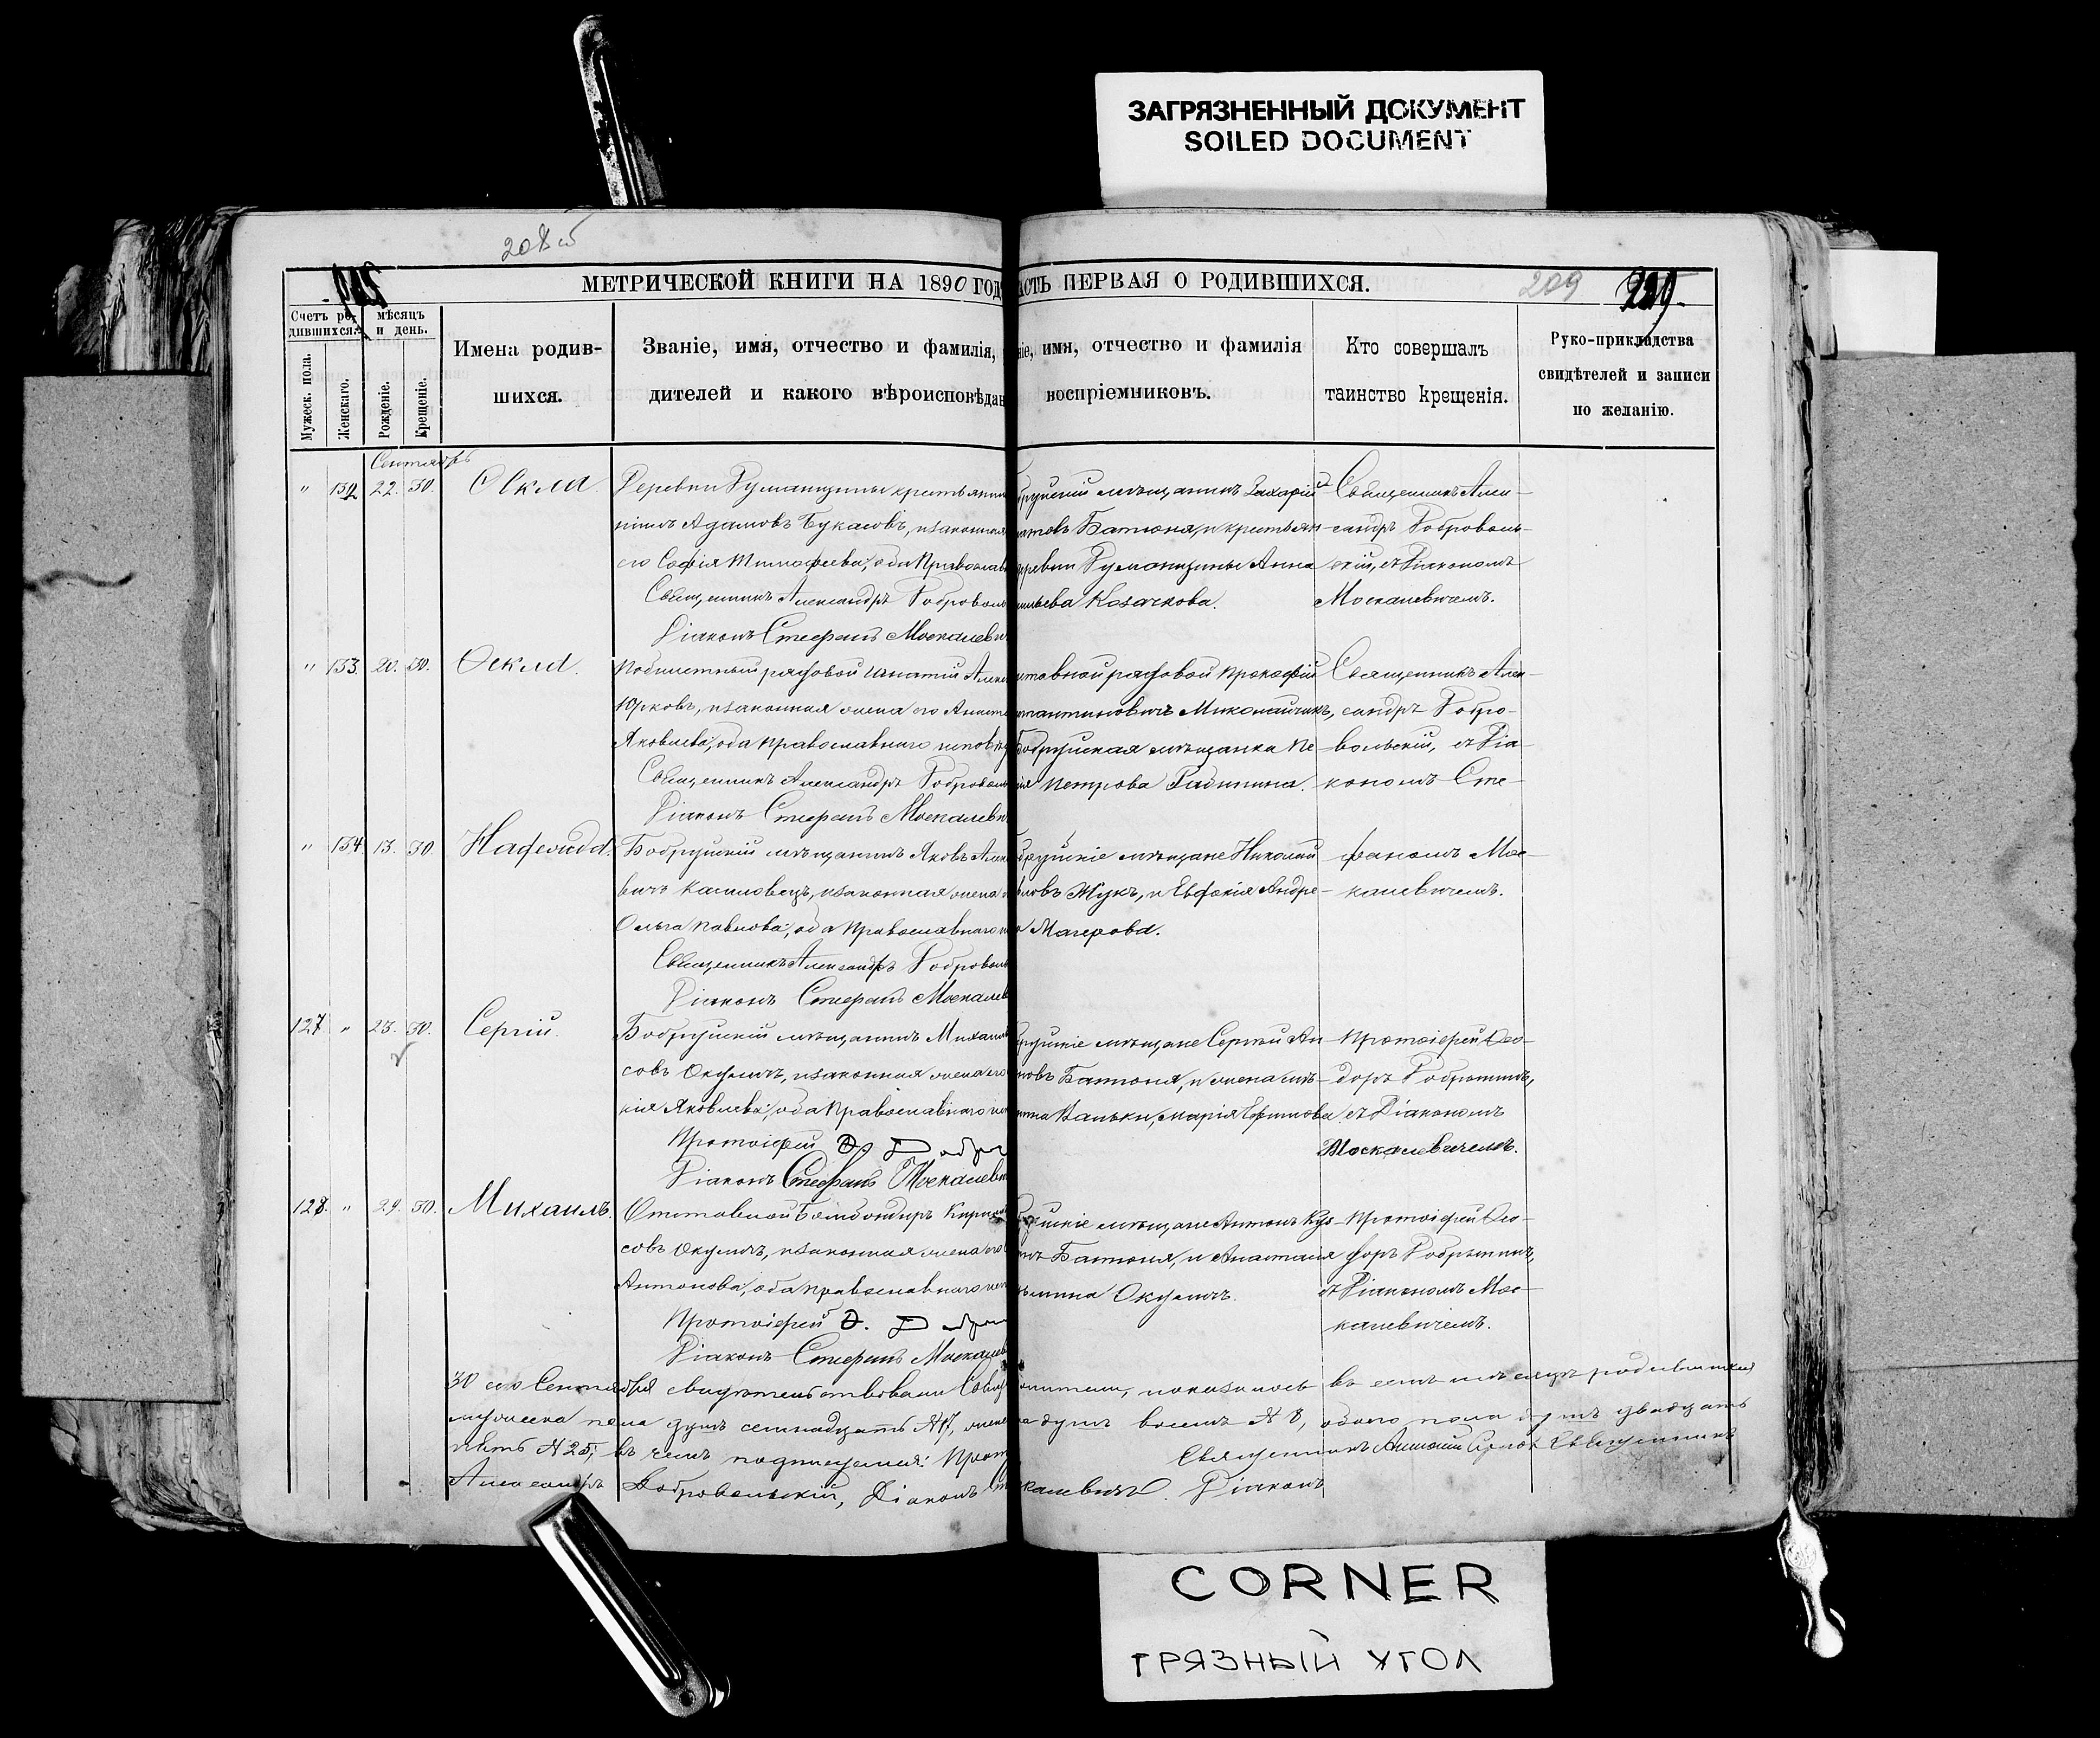 ЗАГРЯЗНЕННЫЙ ДОКУМЕНТ
SOILED DOCUMENT
208 об
209
МЕТРИЧЕСКОЙ КНИГИ НА 1890 ГОД
АСТЬ ПЕРВАЯ О РОДИВШИХСЯ.
Счетъ ро-
дившихся.
Мужеск. пола.
Женскаго.
мѣсяцъ
и день.
Рожденіе.
Крещеніе.
Имена родив-
шихся.
Званіе, имя, отчество и фамилія,
дителей и какого вѣроисповѣдан
ніе, имя, отчество и фамилія
воспріемниковъ.
Кто совершалъ
таинство крещенія.
Руко-прикладства
свидѣтелей и записи
по желанію.
Сентябрь
" 132 22. 30. Ѳекла.
Деревни Думанщины крестьянин
Адамовъ Букасовъ, и законная
его Софія Тимофеева, оба Православн
Священникъ Александръ Добровол
Діаконъ Стефанъ Москалеви
бруйскій мѣщанинъ Захарій
Батюня, и крестьян
деревни Думанщины Анна
Козачкова.
Священникъ Алек-
сандръ Доброволь-
скій, съ Діакономъ
Москалевичемъ.
" 133. 20. 30. Ѳекла.
рядовой Игнатій Алек
Юрковъ, и законная жена его Анаст
Яковлева, оба православнаго исповѣд
Священникъ Александръ Доброволь
Діаконъ Стефанъ Москалеви
ставной рядовой Прокофій
стантиновичъ Миколайчикъ,
Бобруйская мѣщанка Пе
Петрова
Священникъ Алек-
сандръ Добро-
вольскій, съ Діа-
кономъ Сте-
фаномъ Мос-
калевичемъ.
" 134. 13. 30.
Бобруйскій мѣщанинъ Яковъ Алек
вичъ и законная жена
Ольга Павлова, оба Православнаго
Священникъ Александръ Доброволь
Діаконъ Стефанъ Москалев
бруйскіе мѣщане Николай
Жукъ, и Евдокія Андре-
Магерова.
127. " 23. 30. Сергій.
Бобруйскій мѣщанинъ Михаил
совъ Окуличъ, и законная жена его
кія Яковлева, оба Православнаго исп
Протоіерей Ѳ. Добры
Діаконъ Стефанъ Москалеви
бруйскіе мѣщане Сергѣй Ан-
новъ Батюня, и жена мѣ-
Марія Ефимова
Протоіерей Ѳео-
доръ Добрынинъ,
съ Діакономъ
Москалевичемъ.
128. " 29. 30. Михаилъ.
Отставной Бомбандиръ Кирил
совъ Окуличъ, и законная жена его
Антонова, оба православнаго исп
Протоіерей Ѳ. Добры
Діаконъ Стефанъ Москалев
бруйскіе мѣщане Антонъ Куз-
Батюня, и Анастасія
Окуличъ.
Протоіерей Ѳео-
доръ Добрынинъ,
съ Діакономъ Мос-
калевичемъ.
30 сего Сентября свидѣтельствовали въ семъ мѣсяцѣ родившихся
мужеска пола душъ семнадцать №17, душъ восемь № 8, обоего пола душъ двадцать
пять №25, въ чемъ подписуемся: Прот Священникъ
Александръ Добровольскій, Діаконъ калевичъ. Діаконъ
CORNER
ГРЯЗНЫЙ УГОЛ